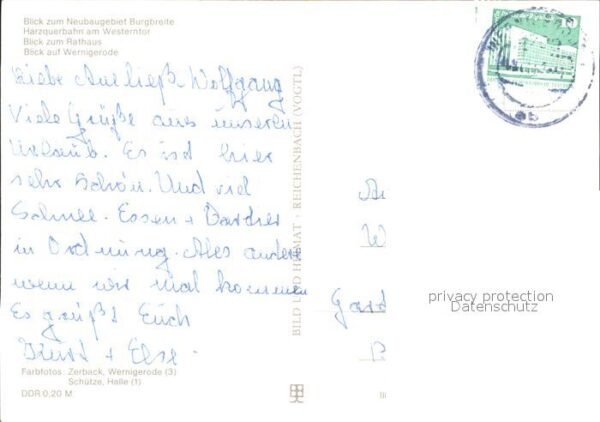 Blick zum Neubaugebiet Burgbreite
Harzquerbahn am Westerntor
Blick zum Rathaus
Blick auf Wernigerode
10
Liebe Wolfgang
Viele Grüße aus unseren
Urlaub. Es ist hier
sehr schön. Und viel
Schnee. Essen +
in Ordnung. Alles andere
wenn wir mal kommen
Es grüßt Euch
Kurt + Else.
BILD UND HEIMAT · REICHENBACH (VOGTL)
W
privacy protection
Datenschutz
Farbfotos: Zerback, Wernigerode (3)
Schütze, Halle (1)
DDR 0,20 M